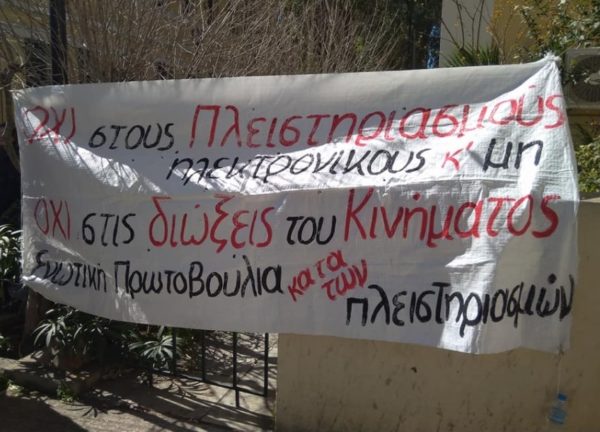 ΌΧΙ στους Πλειστηριασμούς
ηλεκτρονικους κ' μη
ΌΧΙ στις διώξεις του Κινήματος
Ενωτική Πρωτοβουλία κατα των
πλειστηριασμών